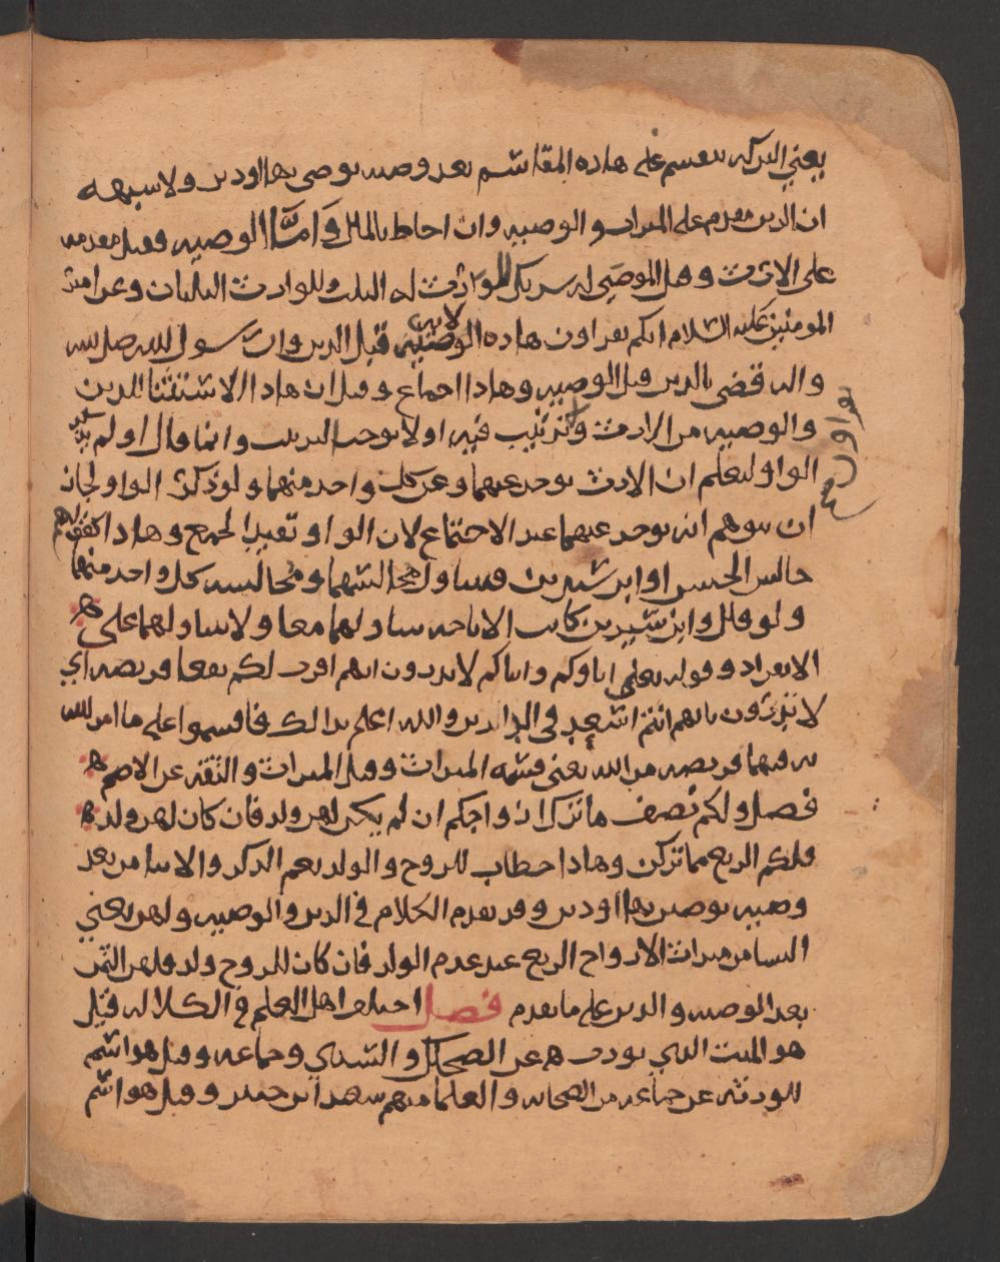 يعني التركه تنقسم على هاذه المقاسم بعد وصيه يوصى بها او دين ولا شبهه
ان الدين مقدم على الميراث والوصيه وان احاط بالمال وَامّا الوصيه فقيل مقدمه
على الارث وهل الموصى له شريك للوارث له الثلث وللوارث الثلثان وعن امير
المومنين عليه السلام انكم تقراون هاذه الايه الوصيه قبل الدين وان رسول الله صلى الله عليه
واله قضى بالدين قبل الوصيه وهاذا اجماع وقيل ان هاذا الاستثنا للدين
والوصيه من الارث وترتيب فيه او لا يوجب الترتيب وانما قال او لم
الواو ليعلم ان الارث يوخر عنهما وعن كل واحد منهما ولو ذكر الواو لجاز
ان يتوهم انه يوخر عنهما عند الاجتماع لان الواو تفيد الجمع وهاذا كقولهم
جالس الحسن او ابن سيرين فيتناول مجالستهما ومجالسة كل واحد منهما
ولو قال وابن سيرين كانت الاباحه تتناولهما معا ولا تتناولهما على
الانفراد وقوله تعالى اباوكم وابناكم لا تدرون ايهم اقرب لكم نفعا فريضه اي
لا تدرون بايهم انتم اسعد في الدارين والله اعلم بذالك فاقسموا على ما امر الله
به فيهما فريضه من الله يعني قسمه الميراث وقيل الميراث والنفقه عن الاصم
فصل ولكم نصف ما ترك ازواجكم ان لم يكن لهن ولد فان كان لهن ولد
فلكم الربع مما تركن وهاذا خطاب للزوج والولد يعم الذكر والانثا من بعد
وصيه يوصين بها او دين وقد تقدم الكلام في الدين والوصيه ولهن يعني
النسا من ميراث الازواج الربع عند عدم الولد فان كان للزوج ولد فلهن الثمن
بعد الوصيه والدين على ما تقدم فصل اختلف اهل العلم في الكلاله قيل
هو الميت الذي يورث عن الضحاك والسدي وجماعه وقيل هو اسم
للورثه عن جماعه من الصحابه والعلما منهم سعيد ابن جبير وقيل هو اسم